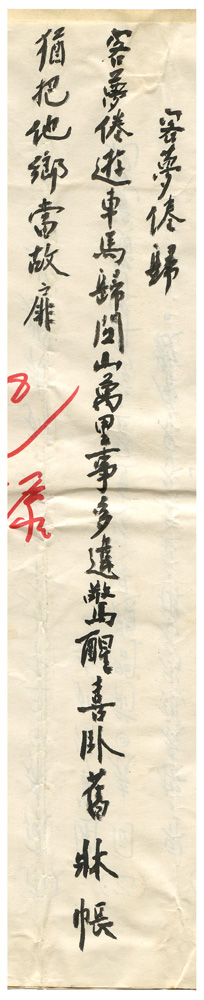 客夢倦歸
客夢倦遊車馬歸關山萬里事多違驚醒喜臥舊牀帳
猶把他鄉當故扉